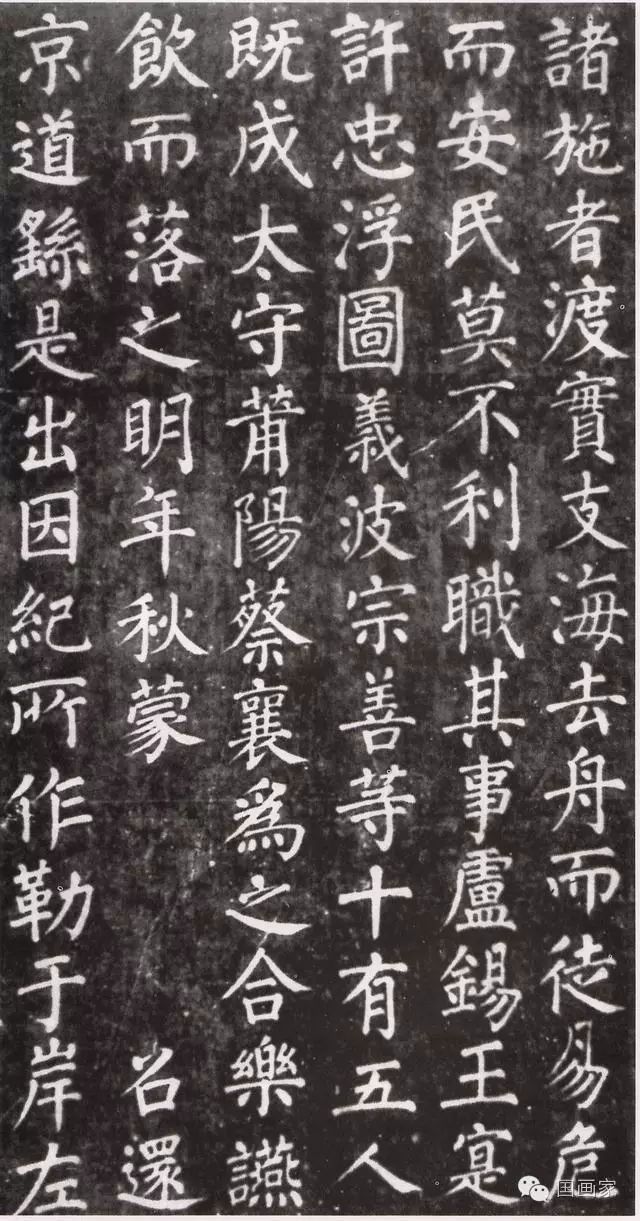 諸施者渡實支海去舟而徒易危
而安民莫不利職其事盧錫王寔
許忠浮圖義波宗善等十有五人
既成太守莆陽蔡襄爲之合樂讌
飲而落之明年秋蒙 召還
京道繇是出因紀所作勒于岸左
国画家